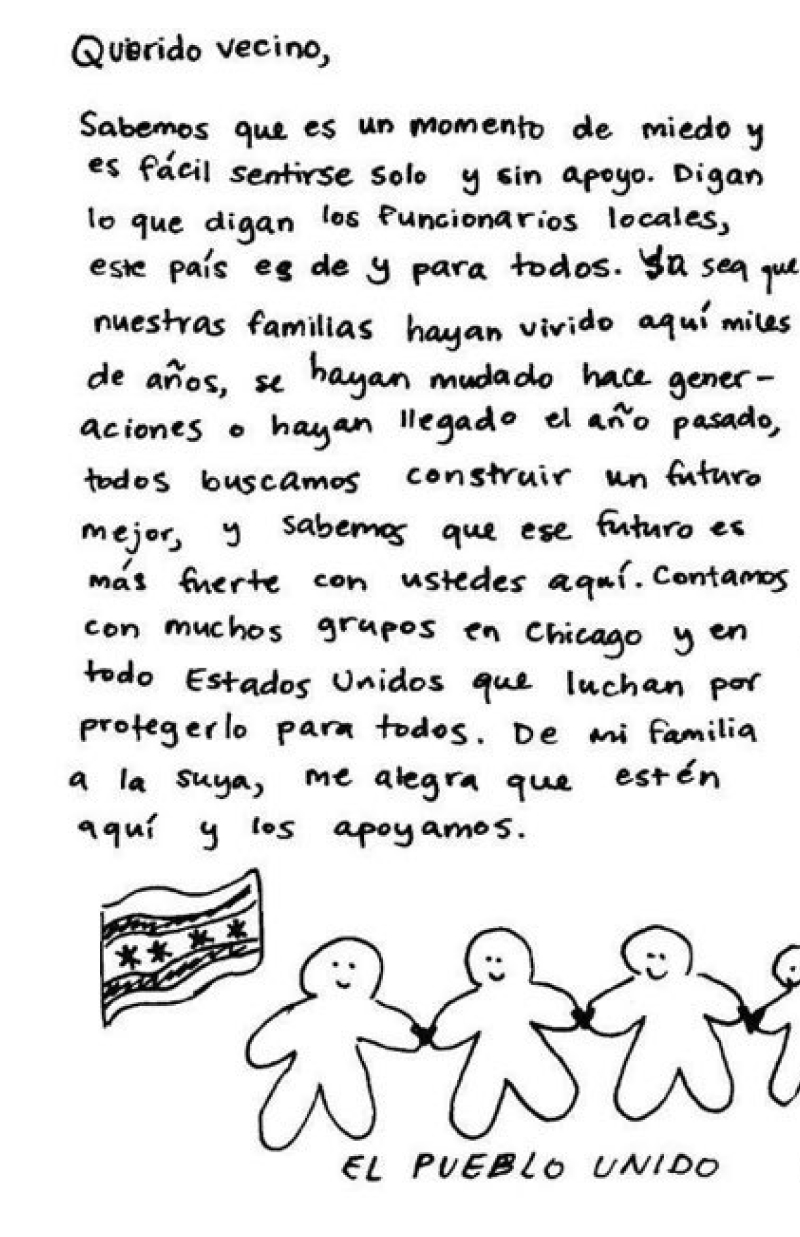 Querido vecino,
Sabemos que es un momento de miedo y
es fácil sentirse solo y sin apoyo. Digan
lo que digan los funcionarios locales,
este país es de y para todos. Ya sea que
nuestras familias hayan vivido aquí miles
de años, se hayan mudado hace gener-
aciones o hayan llegado el año pasado,
todos buscamos construir un futuro
mejor, y sabemos que ese futuro es
más fuerte con ustedes aquí. Contamos
con muchos grupos en Chicago y en
todo Estados Unidos que luchan por
protegerlo para todos. De mi familia
a la suya, me alegra que estén
aquí y los apoyamos.
EL PUEBLO UNIDO